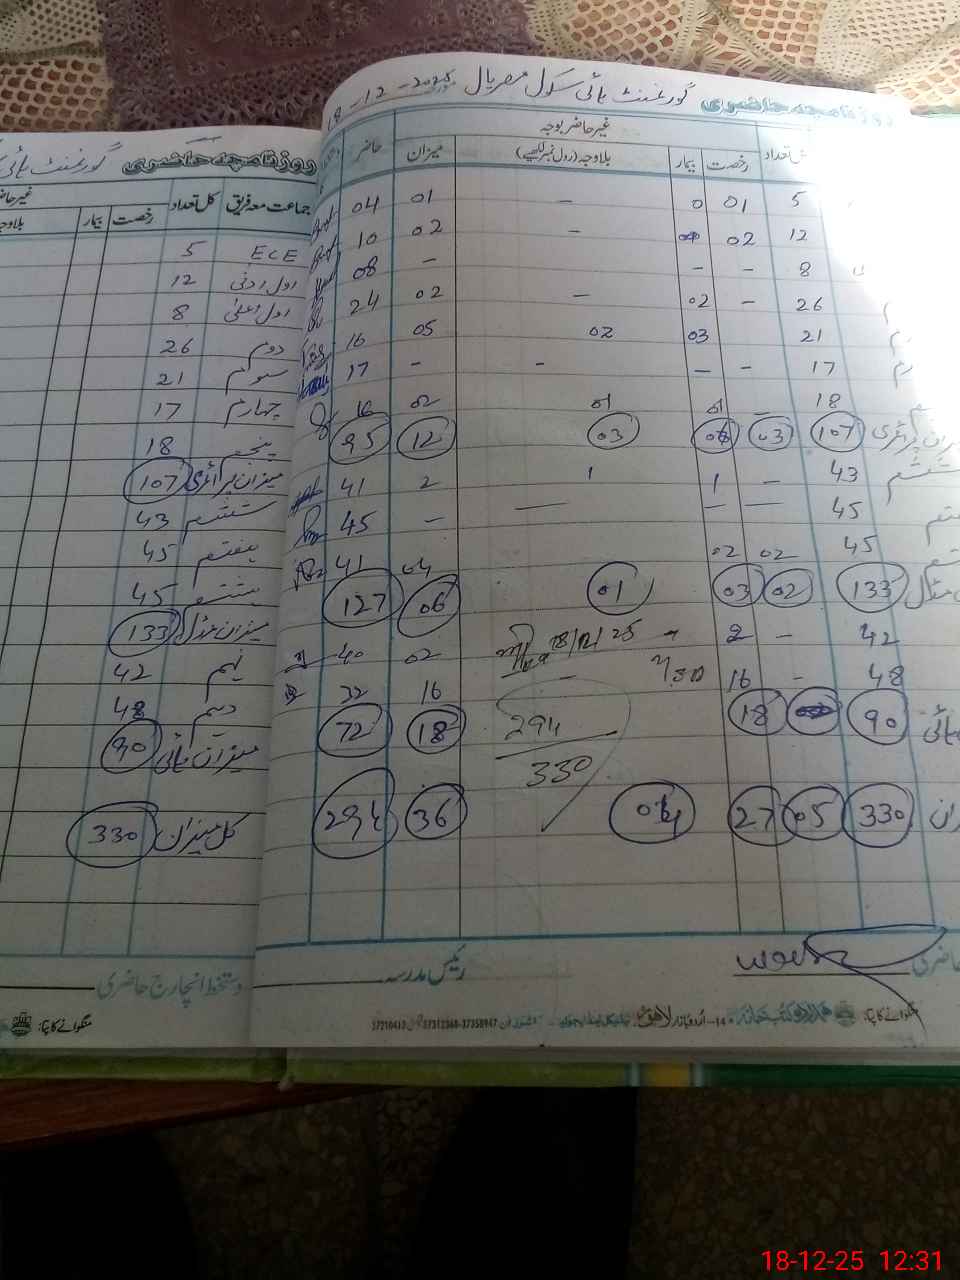 گورنمنٹ ہائی سکول مصریال 18-12-2025
روزنامچہ حاضری
کل تعداد رخصت بیمار بلاوجہ (رول نمبر لکھیے) میزان حاضر
غیر حاضر بوجہ
5 01 0 – 01 04
12 02 – 02 10
8 – – – 08
26 – 02 – 02 24
21 03 02 05 16
17 – – – – 17
18 – 01 01 02 16
107 03 03 12 95
43 – 1 1 2 41
45 – – – – 45
45 02 02 04 41
133 02 03 01 06 127
42 – 2 – 02 40
18/12/25
48 – 16 – 16 32
90 18 18 72
294
330
330 05 27 04 36 294
رئیس مدرسہ
منگوانے کا پتا: 14-اردو بازار لاہور
37310413 37312368-37358947
گورنمنٹ ہائی
روزنامچہ حاضری
جماعت معہ فریق کل تعداد رخصت بیمار
ECE 5
اول ادنیٰ 12
اول اعلیٰ 8
دوم 26
سوئم 21
چہارم 17
پنجم 18
میزان پرائمری 107
ششم 43
ہفتم 45
ہشتم 45
میزان مڈل 133
نہم 42
دہم 48
میزان ہائی 90
کل میزان 330
دستخط انچارج حاضری
منگوانے کا پتا:
18-12-25 12:31